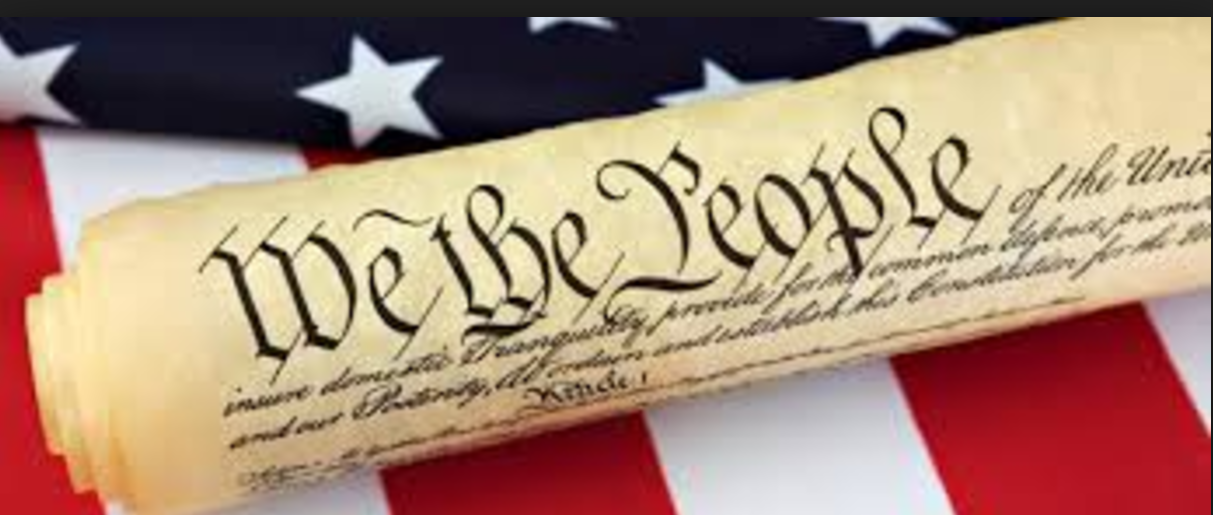 We the People of the Unit
insure domestic Tranquility, provide for the common defence, promo
and our Posterity, do ordain and establish this Constitution for the
Article I